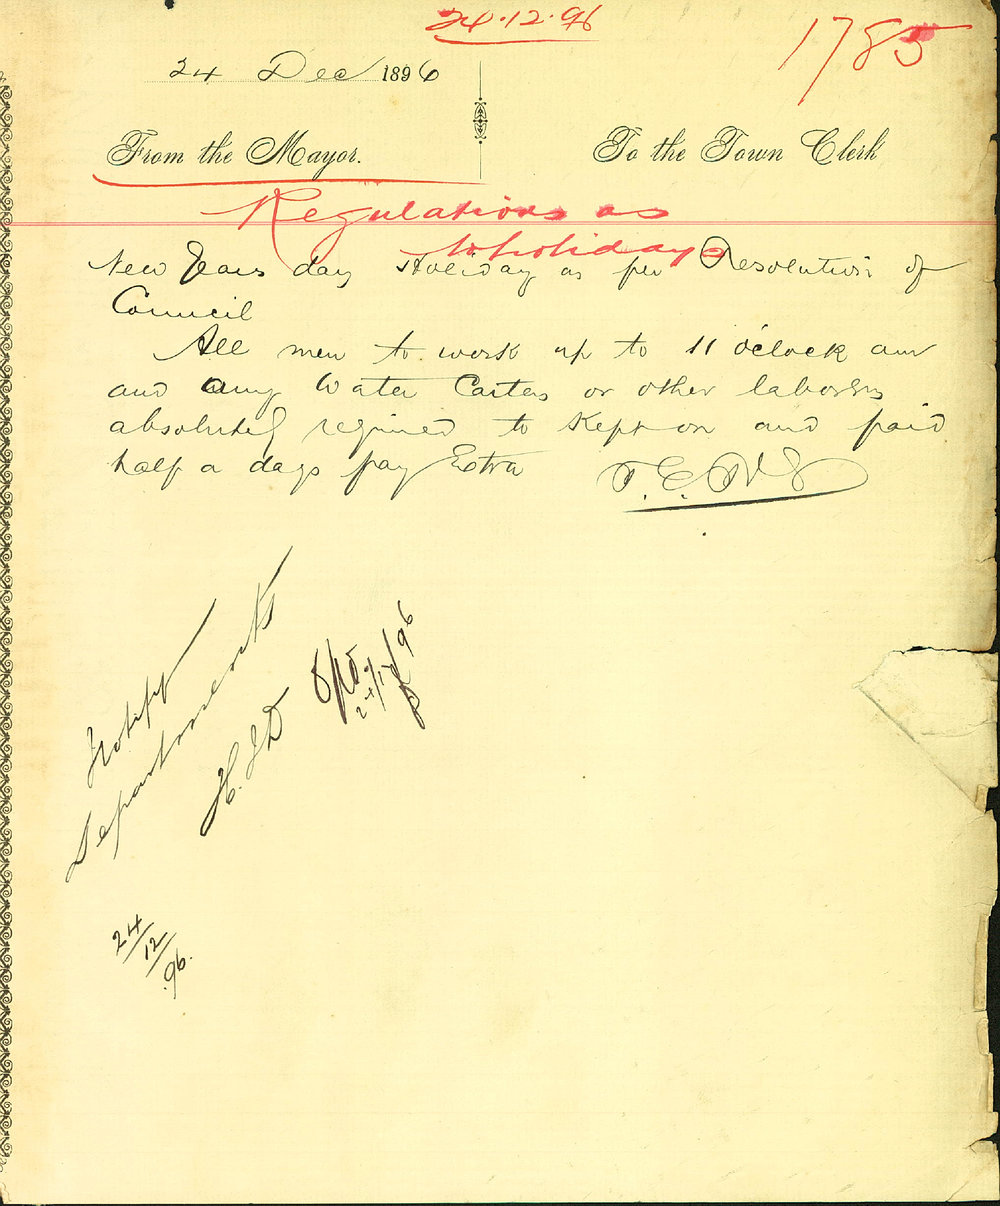 24.12.96
1785
24 Dec 1896
From the Mayor.
To the Town Clerk
Regulations as
to holidays
New Years day Holiday as per Resolution of
Council
All men to work up to 11 o'clock am
and any Water Carters or other laborers
absolutely required to Kept on and paid
half a days pay Extra
Notify
Departments
H.
24/12/96
24/12/96.